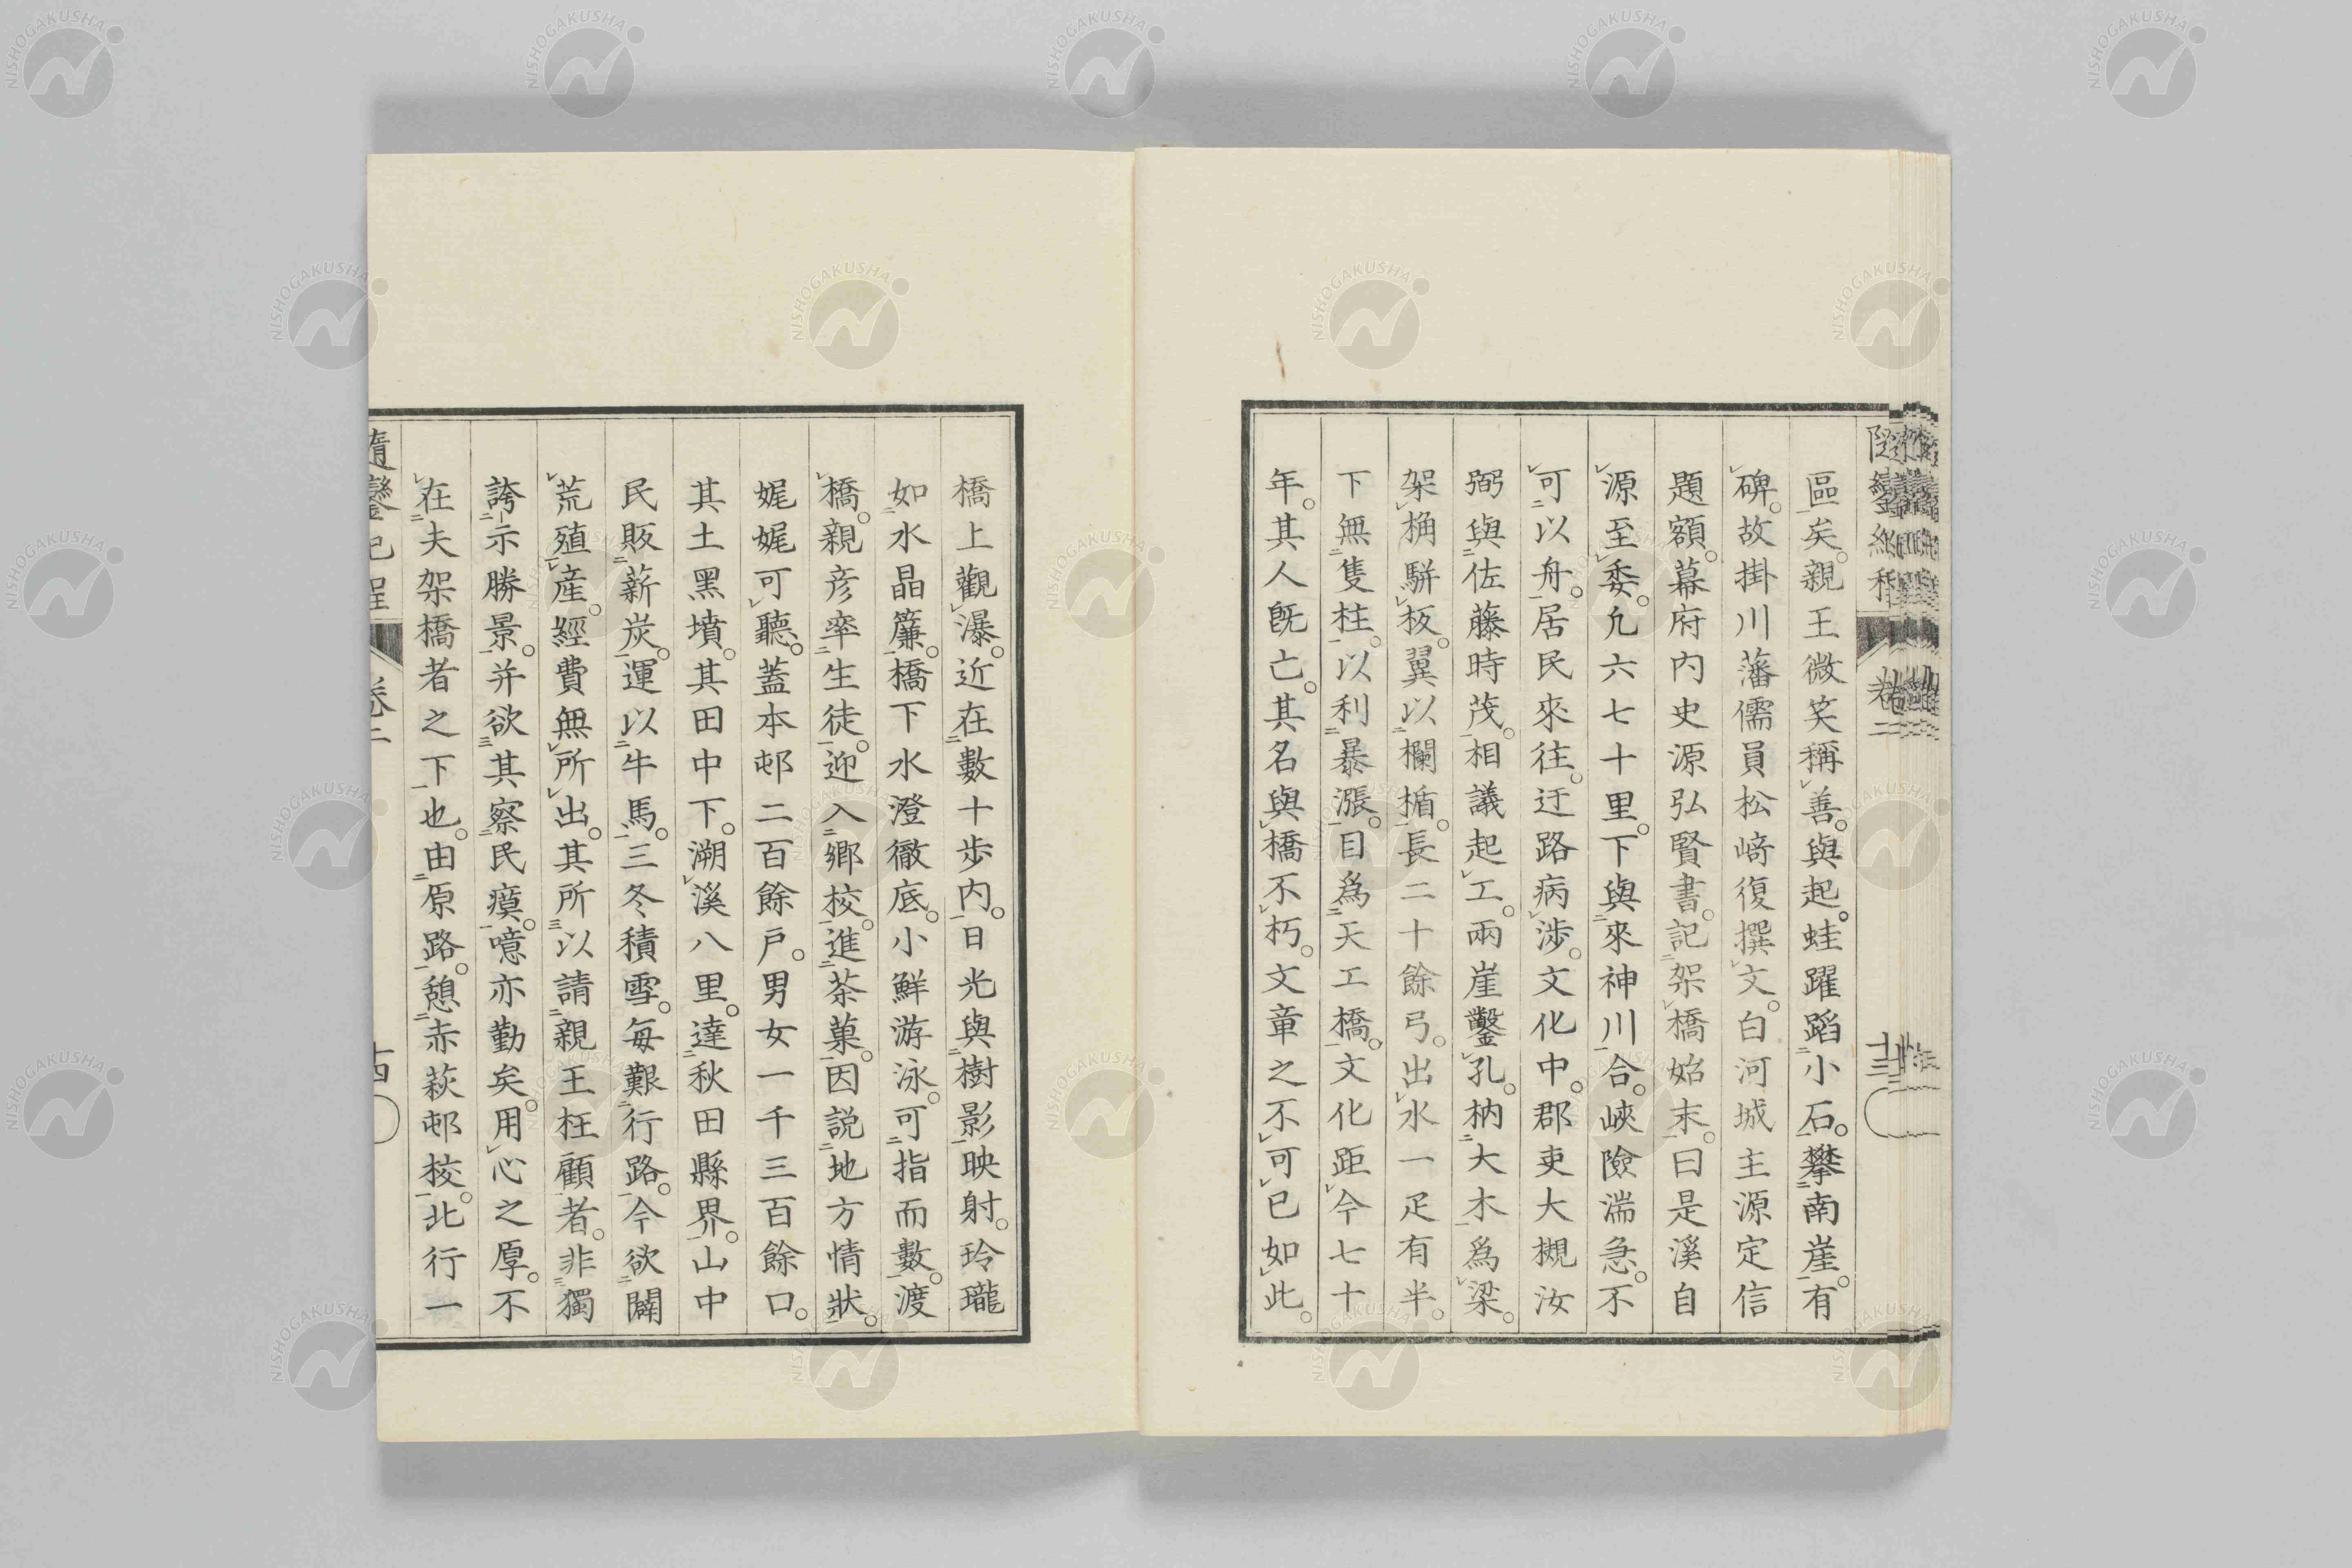 區矣。親王微笑稱善。與起。蛙躍蹈小石。攀南崖。有
碑。故掛川藩儒員松﨑復撰文。白河城主源定信
題額。幕府內史源弘賢書。記架橋始末。曰是溪自
源至委。凢六七十里。下與來神川合。峽險湍急。不
可以舟。居民來往。迂路病涉。文化中。郡吏大槻汝
弼與佐藤時茂。相議起工。兩崖鑿孔。枘大木爲梁。
架桷駢板。翼以欄楯。長二十餘弓。出水一疋有半。
下無隻柱。以利暴漲。目爲天工橋。文化距今七十
年。其人旣亡。其名與橋不朽。文章之不可已如此。
橋上觀瀑。近在數十步內。日光與樹影映射。玲瓏
如水晶簾。橋下水澄徹底。小鮮游泳。可指而數。渡
橋。親彥率生徒。迎入鄉校。進茶菓。因説地方情狀。
娓娓可聽。蓋本邨二百餘戶。男女一千三百餘口。
其土黑墳。其田中下。溯溪八里。達秋田縣界。山中
民販薪炭。運以牛馬。三冬積雪。每艱行路。今欲闢
荒殖產。經費無所出。其所以請親王枉顧者。非獨
誇示勝景。并欲其察民瘼。噫亦勤矣。用心之厚。不
在夫架橋者之下也。由原路。憩赤萩邨校。北行一
隨鑾紀程
卷二
十四